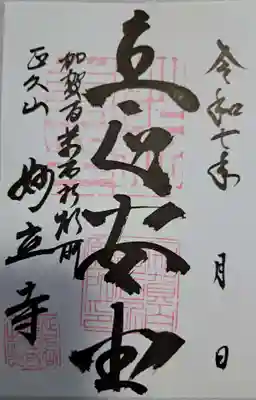 令和七年 月 日
立正安国
加賀百万石祈願所
正久山
妙立寺